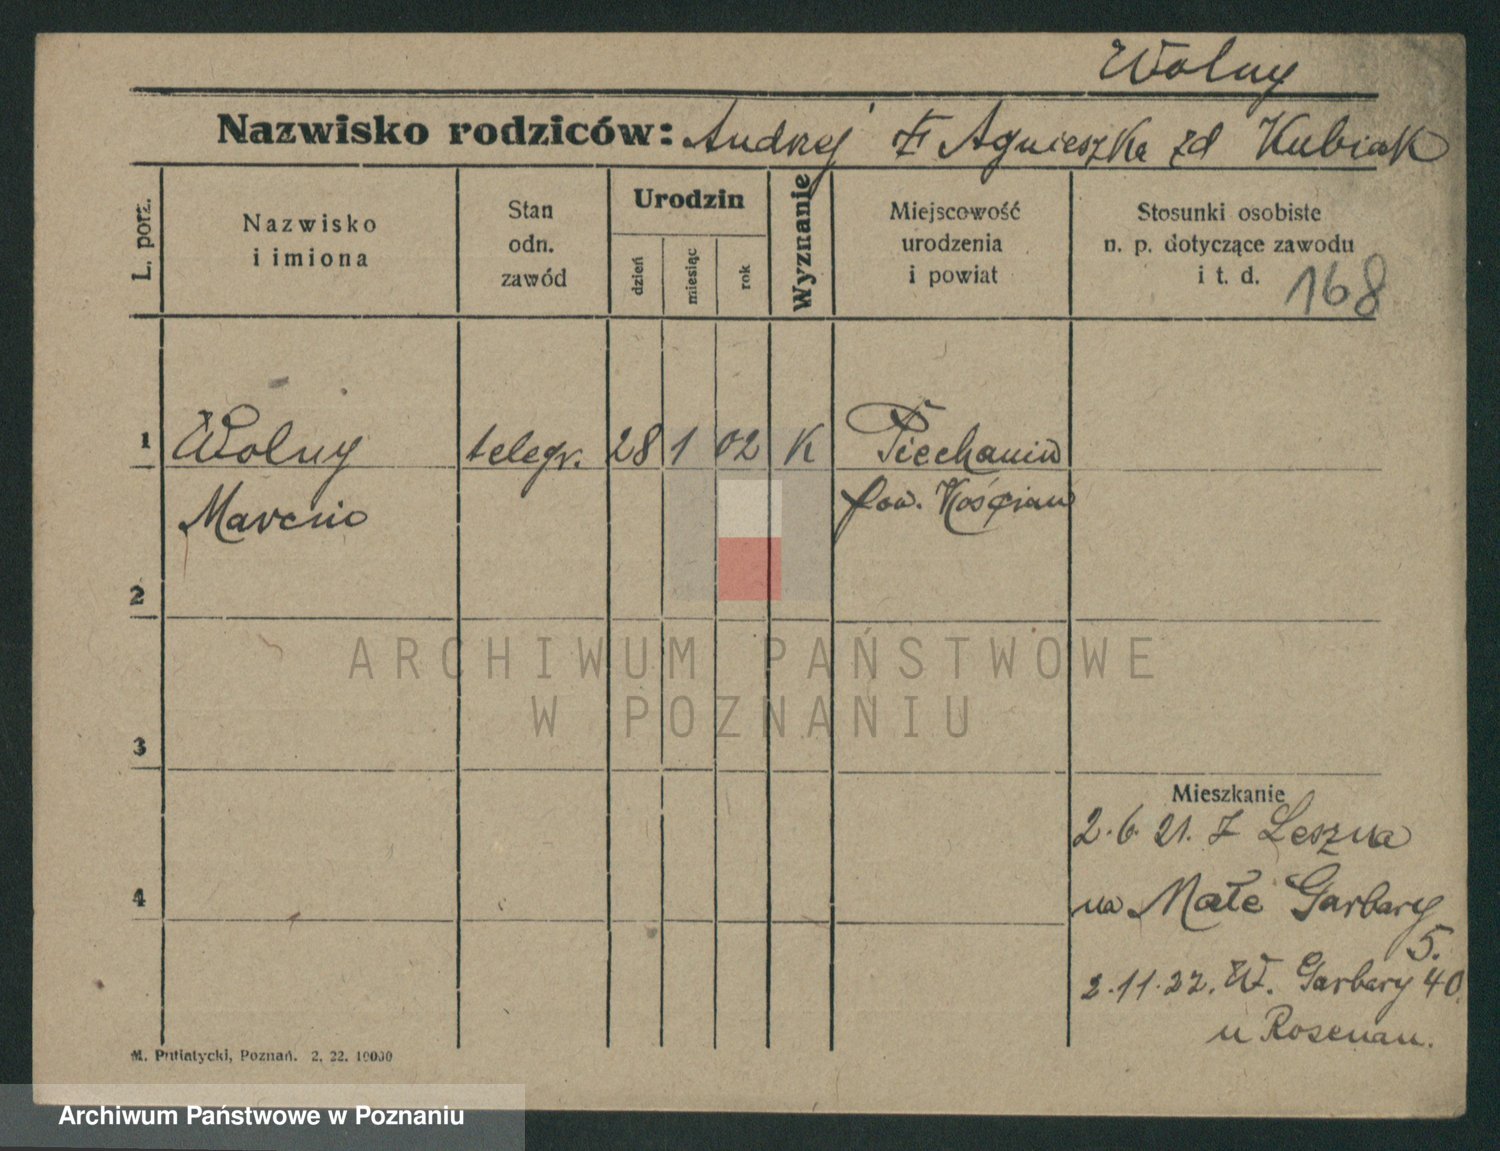 Wolny
Nazwisko rodziców: Andrzej i Agnieszka zd Kubiak
L. porz.
Nazwisko
i imiona
Stan
odn.
zawód
Urodzin
dzień
miesiąc
rok
Wyznanie
Miejscowość
urodzenia
i powiat
Stosunki osobiste
n. p. dotyczące zawodu
i t. d.
168
1 Wolny telegr. 28 1 02 K Piechanin
Marcin pow. Kościan
2
ARCHIWUM PAŃSTWOWE
W POZNANIU
3
Mieszkanie
2.6.21. z Leszna
4
na Małe Garbary
5.
2.11.22. W. Garbary 40
u Rosenau.
M. Putiatycki, Poznań. 2. 22. 10000
Archiwum Państwowe w Poznaniu